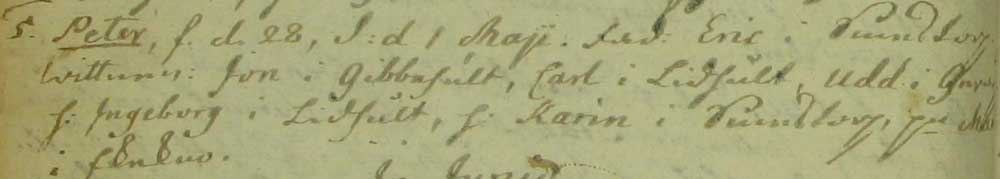 5. Peter, f. d. 28, D: d 1 Maji. Fad: Eric i Sunstorp.
Wittnen: Jon i Gibbhult, Carl i Lidhult, Udd i
h: Ingeborg i Lidhult, h: Karin i Sunstorp, pn
i